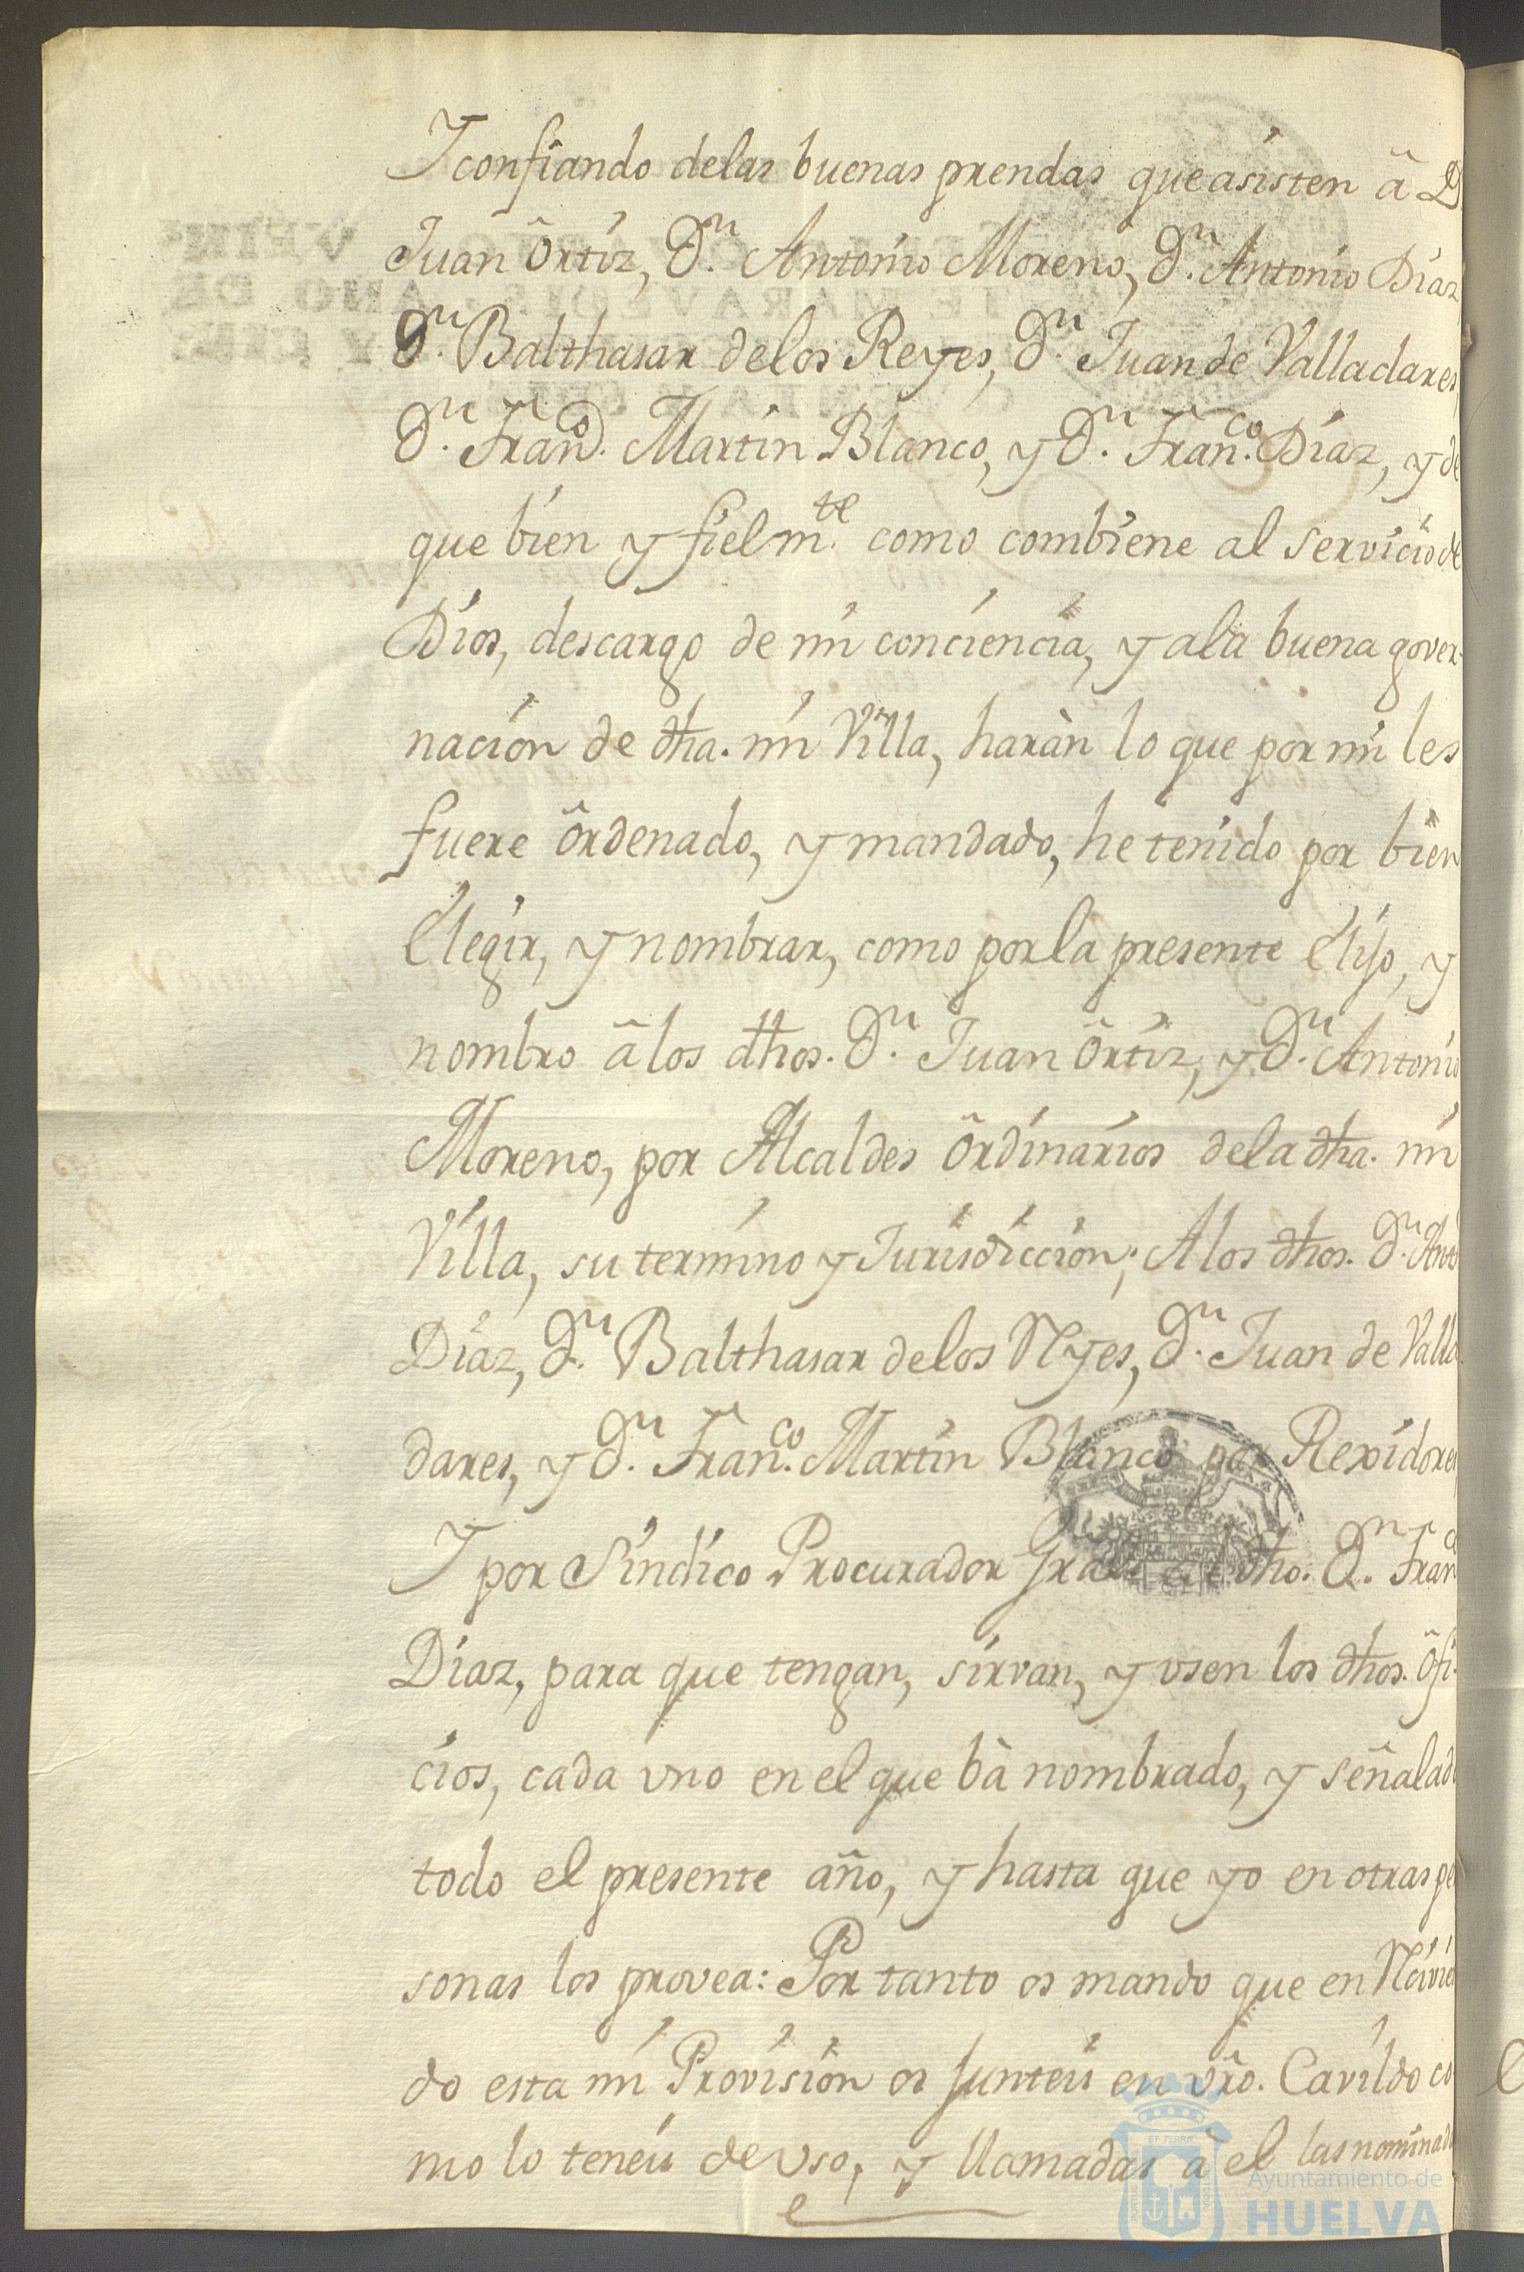 Y confiando delas buenas prendas que asisten â D.
Juan Ôrtiz, D.n Antonio Moreno, D.n Antonio Diaz,
D.n Balthasar delos Reyes, D.n Juan de Valladares,
D.n Fran.co Martin Blanco, y D.n Fran.co Diaz, y de
que bien y fielm.te como combiene al servicio de
Dios, descargo de mi conciencia, y ala buena gover-
nacion de dha. mi Villa, haràn lo que por mi les
fuere ôrdenado, y mandado, he tenido por bien
Elegir, y nombrar, como por la presente Elijo, y
nombro â los dhos. D.n Juan Ôrtiz, y D.n Antonio
Moreno, por Alcaldes Ôrdinarios dela dha. mi
Villa, su termino y Jurisdiccion; A los dhos. D.n Anto
Diaz, D.n Balthasar delos Ryes, D.n Juan de Valla
dares, y D.n Fran.co Martin Blanco por Rexidores
Y por Sindico Procurador Gral. al dho. D.n Fran.co
Diaz, para que tengan, sirvan, y usen los dhos. ôfi-
cios, cada vno en el que bà nombrado, y señalado
todo el presente año, y hasta que yo en otras per
sonas los provea: Por tanto os mando que en Reivien
do esta mi Provision os junteis en vro. Cavildo co
mo lo teneis de uso, y llamadas à el las nominadas
ET TERRÆ
Ayuntamiento de
HUELVA